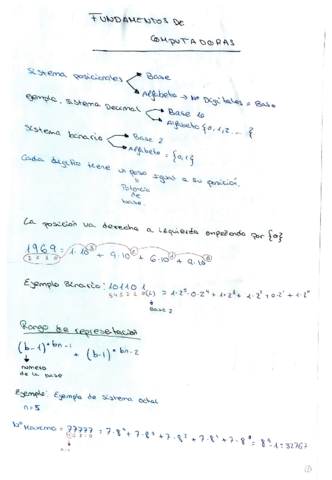 FUNDAMENTOS DE
COMPUTADORAS
Sistema posicionales
Base
Alfabeto → Nº Digitales = Base
Ejemplo, Sistema Decimal
Base 10
Alfabeto {0,1,2 ... {
Sistema binario
Base 2
Alfabeto = {0,1}
Cada dígito tiene un peso igual a su posición.
Potencia
de
base.
La posición va derecha a izquierda empezando por {0}
1969 = 1·10³ + 9·10² + 6·10¹ + 9·10⁰
3 2 1 0
Ejemplo Binario: 101101
5 4 3 2 1 0
Base 2
Rango de representación
(b-1)·bn-1 + (b-1)·bn-2
número
de la base
Ejemplo: Ejemplo de sistema octal
n=5
Nº Máximo = 77777 = 7·8⁴ + 7·8³ + 7·8² + 7·8¹ + 7·8⁰ = 8⁵-1 = 32767